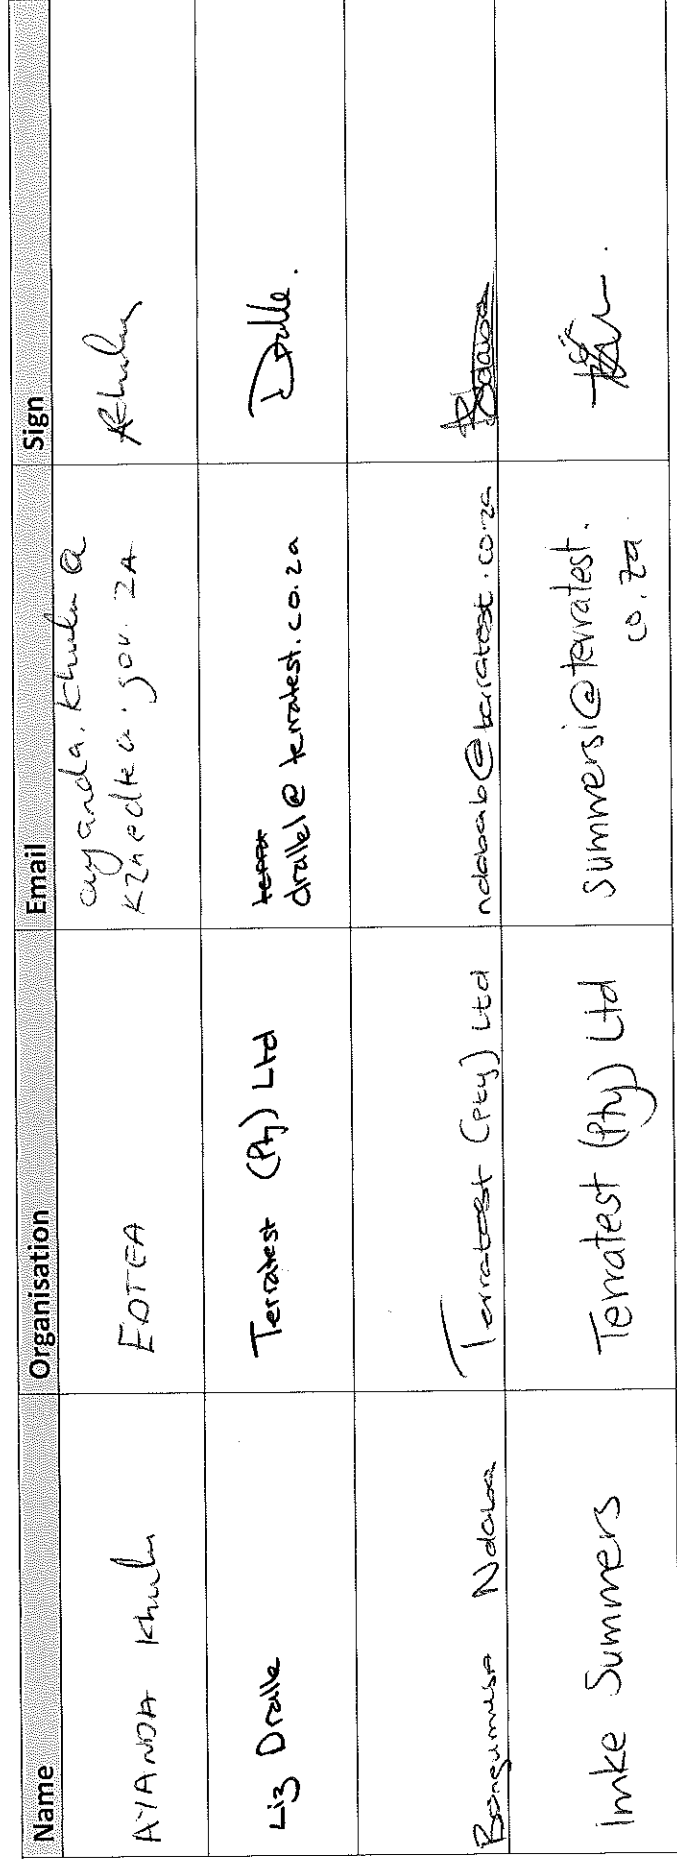 Name Organisation Email Sign
AYANDA EDTEA ayanda.
kznedtea.gov.ZA
Liz Dralle Terratest (Pty) Ltd drallel@terratest.co.za Dralle.
Bongumusa Ndaba Terratest (Pty) Ltd ndabab@terratest.co.za Ndaba
Imke Summers Terratest (Pty) Ltd summersi@terratest.
co.za.